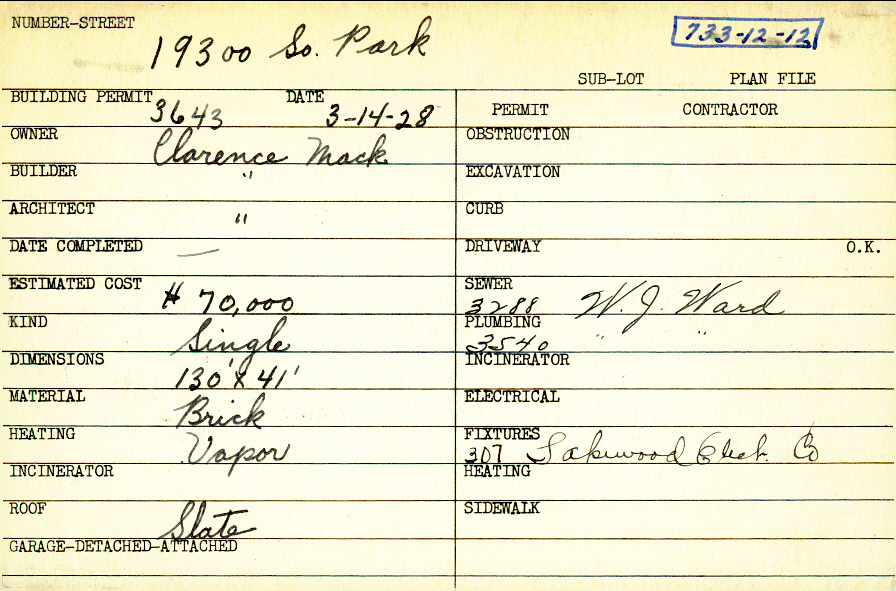 NUMBER-STREET
19300 So. Park
733-12-12
SUB-LOT PLAN FILE
BUILDING PERMIT 3643 DATE 3-14-28
PERMIT CONTRACTOR
OWNER Clarence Mack
OBSTRUCTION
BUILDER "
EXCAVATION
ARCHITECT "
CURB
DATE COMPLETED —
DRIVEWAY O.K.
ESTIMATED COST $ 70,000
SEWER 3288 W. J. Ward
KIND Single
PLUMBING 3540 " "
DIMENSIONS 130' x 41'
INCINERATOR
MATERIAL Brick
ELECTRICAL
HEATING Vapor
FIXTURES 307 Lakewood Elect. Co
INCINERATOR
HEATING
ROOF Slate
SIDEWALK
GARAGE-DETACHED-ATTACHED